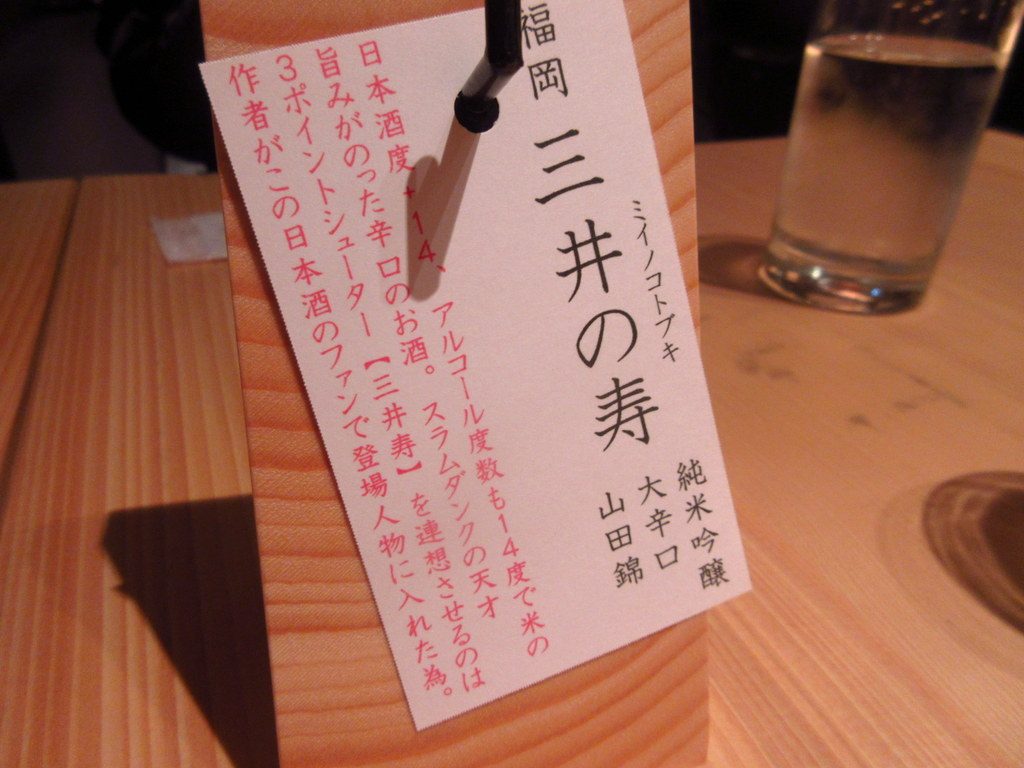 福岡
三井の寿
ミイノコトブキ
純米吟醸
大辛口
山田錦
日本酒度+14、アルコール度数も14度で米の
旨みがのった辛口のお酒。スラムダンクの天才
3ポイントシューター【三井寿】を連想させるのは
作者がこの日本酒のファンで登場人物に入れた為。